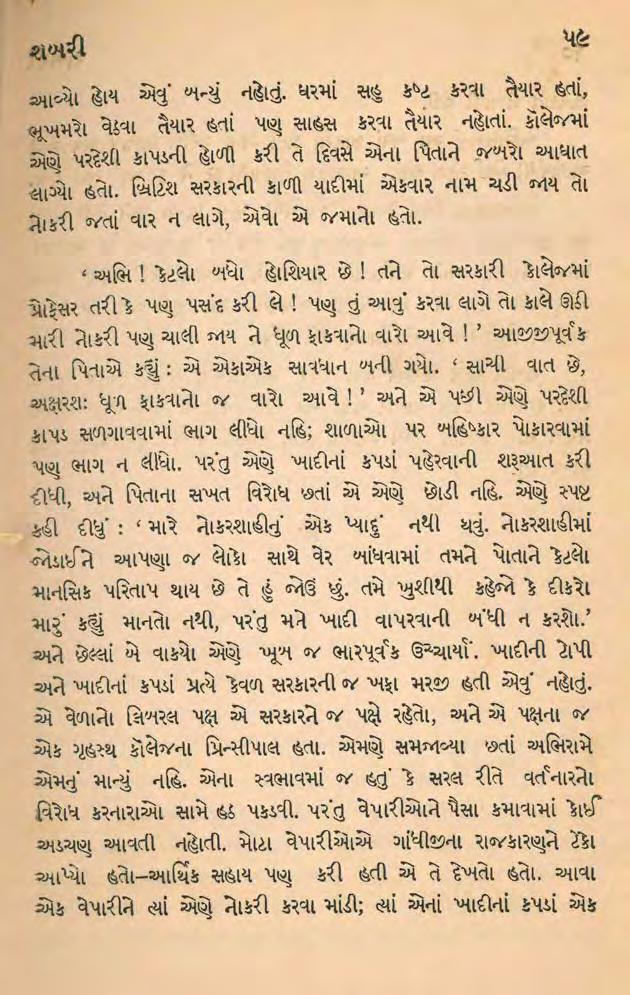 શબરી
૫૯
આવ્યો હોય એવું બન્યું નહોતું. ઘરમાં સહુ કષ્ટ કરવા તૈયાર હતાં,
ભૂખમરો વેઠવા તૈયાર હતાં પણ સાહસ કરવા તૈયાર નહોતાં. કૉલેજમાં
એણે પરદેશી કાપડની હોળી કરી તે દિવસે એના પિતાને જબરો આઘાત
લાગ્યો હતો. બ્રિટિશ સરકારની કાળી યાદીમાં એકવાર નામ ચડી જાય તો
નોકરી જતાં વાર ન લાગે, એવો એ જમાનો હતો.
‘ અભિ ! કેટલો બધો હોશિયાર છે ! તને તો સરકારી કોલેજમાં
પ્રોફેસર તરીકે પણ પસંદ કરી લે ! પણ તું આવું કરવા લાગે તો કાલે ઊઠી
મારી નોકરી પણ ચાલી જાય ને ધૂળ ફાકવાનો વારો આવે ! ’ આજીજીપૂર્વક
તેના પિતાએ કહ્યું : એ એકાએક સાવધાન બની ગયો. ‘ સાચી વાત છે,
અક્ષરશઃ ધૂળ ફાકવાનો જ વારો આવે ! ’ અને એ પછી એણે પરદેશી
કાપડ સળગાવવામાં ભાગ લીધો નહિ; શાળાઓ પર બહિષ્કાર પોકારવામાં
પણ ભાગ ન લીધો. પરંતુ એણે ખાદીનાં કપડાં પહેરવાની શરૂઆત કરી
દીધી, અને પિતાના સખત વિરોધ છતાં એ એણે છોડી નહિ. એણે સ્પષ્ટ
કહી દીધું : ‘ મારે નોકરશાહીનું એક પ્યાદું નથી થવું. નોકરશાહીમાં
જોડાઈને આપણા જ લોકો સાથે વેર બાંધવામાં તમને પોતાને કેટલો
માનસિક પરિતાપ થાય છે તે હું જોઉં છું. તમે ખુશીથી કહેજો કે દીકરો
મારું કહ્યું માનતો નથી, પરંતુ મને ખાદી વાપરવાની બંધી ન કરશો.’
અને છેલ્લાં બે વાક્યો એણે ખૂબ જ ભારપૂર્વક ઉચ્ચાર્યાં. ખાદીની ટોપી
અને ખાદીનાં કપડાં પ્રત્યે કેવળ સરકારની જ ખફા મરજી હતી એવું નહોતું.
એ વેળાનો લિબરલ પક્ષ એ સરકારને જ પક્ષે રહેતો, અને એ પક્ષના જ
એક ગૃહસ્થ કૉલેજના પ્રિન્સીપાલ હતા. એમણે સમજાવ્યા છતાં અભિરામે
એમનું માન્યું નહિ. એના સ્વભાવમાં જ હતું કે સરલ રીતે વર્તનારનો
વિરોધ કરનારાઓ સામે હઠ પકડવી. પરંતુ વેપારીઓને પૈસા કમાવામાં કોઈ
અડચણ આવતી નહોતી. મોટા વેપારીઓએ ગાંધીજીના રાજકારણને ટેકો
આપ્યો હતો–આર્થિક સહાય પણ કરી હતી એ તે દેખતો હતો. આવા
એક વેપારીને ત્યાં એણે નોકરી કરવા માંડી; ત્યાં એનાં ખાદીનાં કપડાં એક